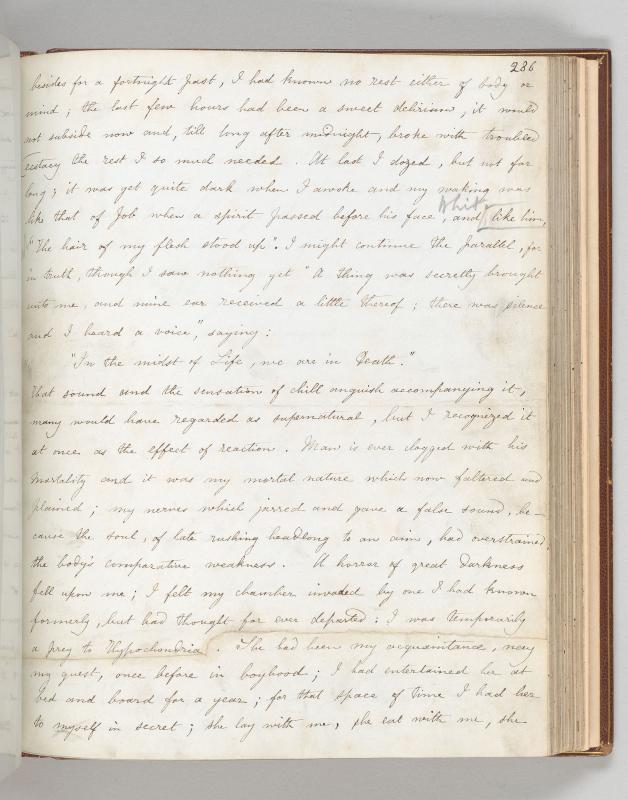 286
besides for a fortnight past, I had known no rest either of body or
mind; the last few hours had been a sweet delirium, it would
not subside now and, till long after midnight, broke with troubled
ecstacy the rest I so much needed. At last I dozed, but not for
long; it was yet quite dark when I awoke and my waking was
like that of Job when a spirit passed before his face, and like him,
"The hair of my flesh stood up". I might continue the parallel, for
in truth, though I saw nothing yet "A thing was secretly brought
unto me, and mine ear received a little thereof; there was silence
and I heard a voice", saying:
"In the midst of Life, we are in Death."
That sound and the sensation of chill anguish accompanying it,
many would have regarded as supernatural, but I recognized it
at once as the effect of reaction. Man is ever clogged with his
Mortality and it was my mortal nature which now faltered and
plained; my nerves which jarred and gave a false sound, be-
cause the soul, of late rushing headlong to an aim, had overstrained
the body's comparative weakness. A horror of great darkness
fell upon me; I felt my chamber invaded by one I had known
formerly, but had thought for ever departed: I was temporarily
a prey to Hypochondria. She had been my acquaintance, nay
my guest, once before in boyhood; I had entertained her at
bed and board for a year; for that space of time I had her
to myself in secret; she lay with me, she eat with me, she